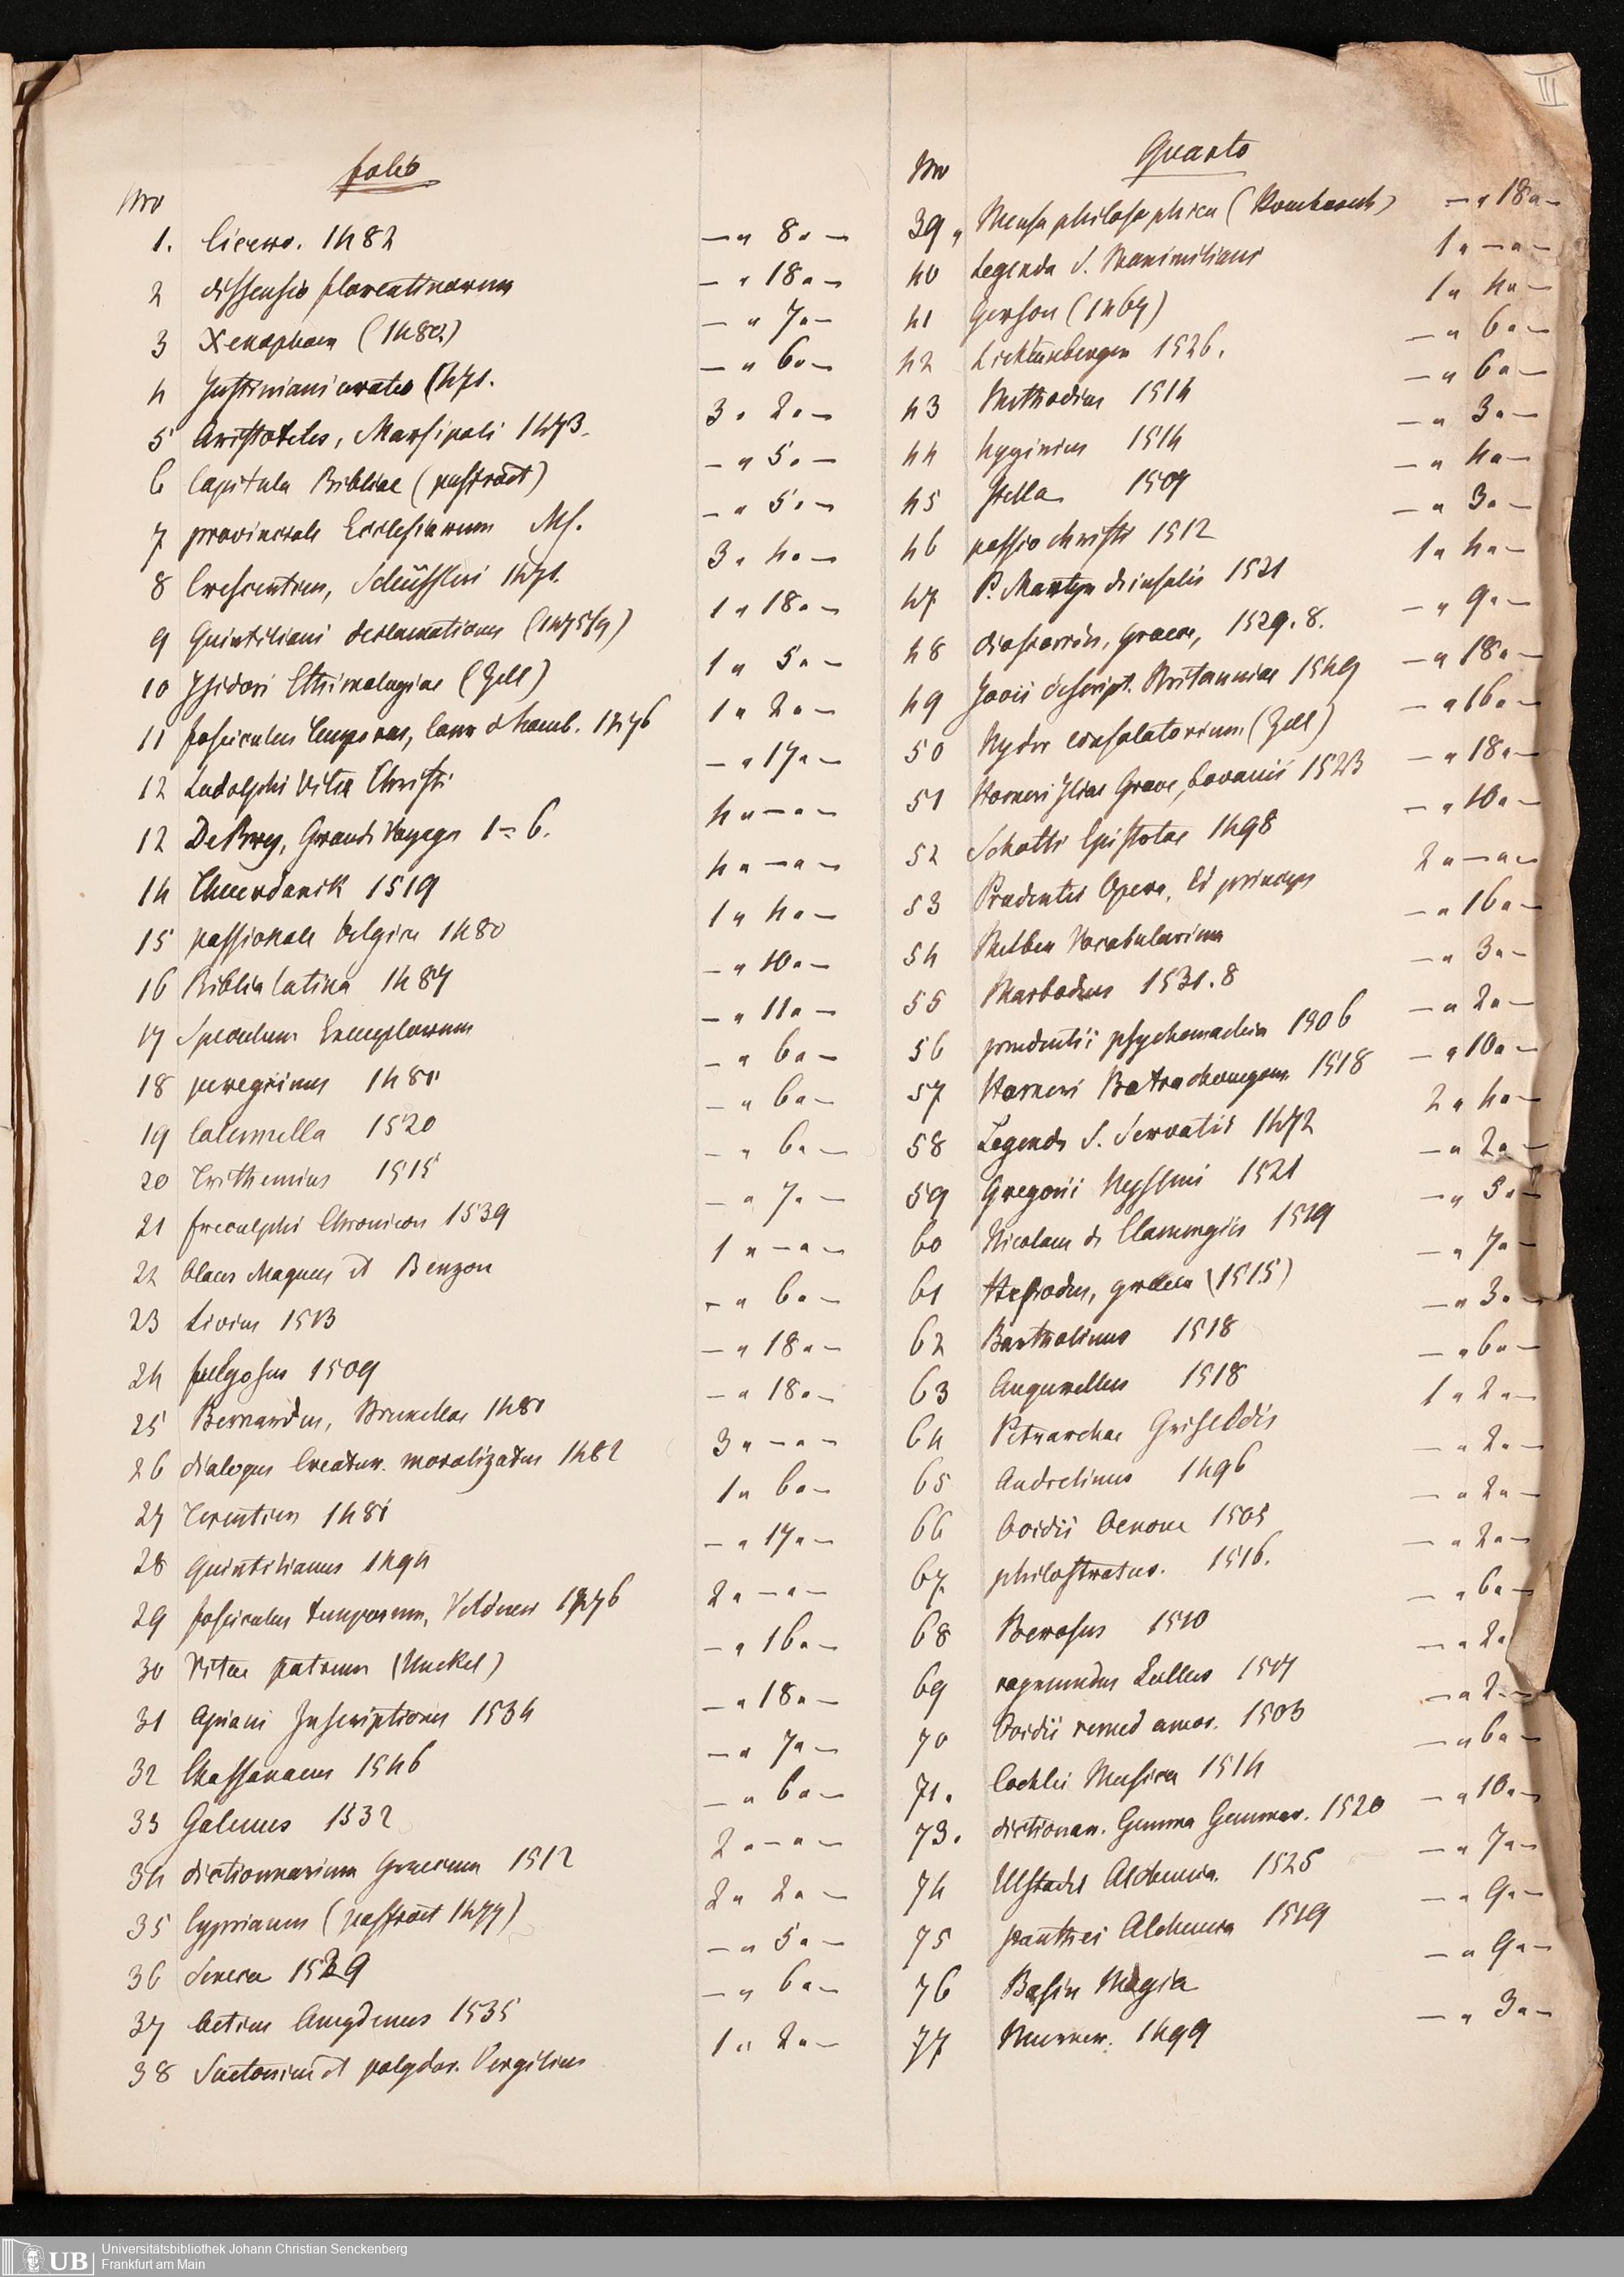 III
folio
Nro
1. Cicero. 1482 — " 8 " —
2 dissensio florentinorum — " 18 " —
3 Xenophon (1480) — " 7 " —
4 Justiniani oratio (1471. — " 6 " —
5 Aristoteles, Marsipoli 1473. 3 " 2 " —
6 Capitula Bibliae (pasfraet) — " 5 " —
7 provinciale Ecclesiarum Ms. — " 5 " —
8 Crescentien, Schüssleri 1471. 3 " 4 " —
9 Quintiliani declamationes 1 " 18 " —
10 Isidori Ethimologiae (Zell) 1 " 5 " —
11 fasciculus temporum, 1476 1 " 2 " —
12 Ludolphi Vita Christi — " 17 " —
12 De Bry, Grands Voyages 1–6. 4 " — " —
14 Theuerdank 1519 4 " — " —
15 passionale belgice 1480 1 " 4 " —
16 Biblia latina 1487 — " 10 " —
17 Speculum Exemplorum — " 11 " —
18 peregrinus 1481 — " 6 " —
19 Columella 1520 — " 6 " —
20 Trithemius 1515 — " 6 " —
21 freculphi Chronicon 1539 — " 7 " —
22 Olaus Magnus et Benzon 1 " — " —
23 Livius 1513 — " 6 " —
24 fulgosus 1509 — " 18 " —
25 Bernardus, Bruxellae 1481 — " 18 " —
26 dialogus Creatur. moralizatus 1482 3 " — " —
27 Terentius 1481 1 " 6 " —
28 Quintilianus 1494 — " 17 " —
29 fasciculus temporum, Veldener 1476 2 " — " —
30 Vitae patrum (Unckel) — " 16 " —
31 Apiani Inscriptiones 1534 — " 18 " —
32 Chassanaeus 1546 — " 7 " —
33 Galenus 1532 — " 6 " —
34 dictionnarium Graecum 1512 2 " — " —
35 Cyprianus (pasfraet 1477) 2 " 2 " —
36 Seneca 1529 — " 5 " —
37 Aetius Amydenus 1535 — " 6 " —
38 Suetonius et polydor. Vergilius 1 " 2 " —
Quarto
Nro
39 " Mensa philosophica — " 18 " —
40 Legenda S. Maximiliani 1 " — " —
41 Gerson (1467) 1 " 4 " —
42 Lichtenberger 1526. — " 6 " —
43 Methodius 1514 — " 6 " —
44 hyginius 1514 — " 3 " —
45 Stella 1507 — " 4 " —
46 passio christi 1512 — " 3 " —
47 P. Martyr de insulis 1521 1 " 4 " —
48 dioscorides, Graece, 1529. 8. — " 9 " —
49 Jovii descript. Britanniae 1549 — " 18 " —
50 Nyder consolatorium (Zell) — " 16 " —
51 Homeri Ilias Graece, Lovanii 1523 — " 18 " —
52 Schotti Epistolae 1498 — " 10 " —
53 Prudentii Opera. Ed princeps 2 " — " —
54 Melber Vocabularium — " 16 " —
55 Marbodeus 1531. 8 — " 3 " —
56 prudentii psychomachia 1506 — " 2 " —
57 Homeri Batrachomyom. 1518 — " 10 " —
58 Legenda S. Servatii 1472 2 " 4 " —
59 Gregorii Nysseni 1521 — " 2 " —
60 Nicolaus de Clamengiis 1519 — " 5 " —
61 Hesiodus, graece (1515) — " 7 " —
62 Bartholinus 1518 — " 3 " —
63 Augurellus 1518 — " 6 " —
64 Petrarchae Griseldis 1 " 2 " —
65 Andrelinus 1496 — " 2 " —
66 Ovidii Oenone 1505 — " 2 " —
67 philostratus. 1516. — " 2 " —
68 Berosus 1510 — " 6 " —
69 raymundus Lullus 1507 — " 2 "
70 Ovidii remed amor. 1503 — " 2 " —
71. Cochlei Musica 1514 — " 6 " —
73. dictionar. Gemma Gemmar. 1520 — " 10 " —
74 Ulstadii Alchemia. 1525 — " 7 " —
75 panthei Alchemia 1519 — " 9 " —
76 Basin Magia — " 9 " —
77 Murner. 1499 — " 3 " —
UB Universitätsbibliothek Johann Christian Senckenberg
Frankfurt am Main